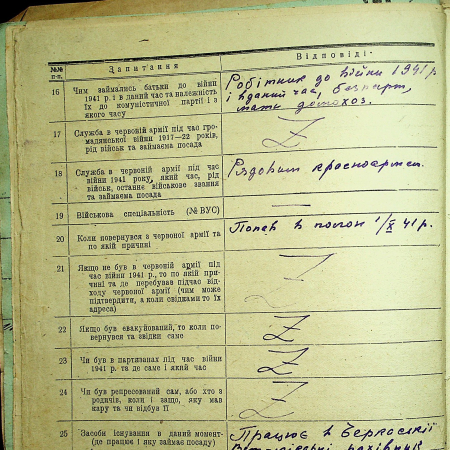 №№ п-п. Запитання Відповіді
16 Чим займались батьки до війни
1941 р. і в даний час та належність
їх до комуністичної партії і з
якого часу
Робітник до війни 1941 р
і в даний час, безпарт,
мати домохоз.
17 Служба в червоній армії під час гро-
мадянської війни 1917—22 років,
рід військ та займаєма посада
Z
18 Служба в червоній армії під час
війни 1941 року, який час, рід
військ, останнє військове звання
та займаєма посада
Рядовим красноармеец.
19 Військова спеціальність (№ ВУС)
—
20 Коли повернувся з червоної армії та
по якій причині
Попав в полон 1/X 41 р.
21 Якщо не був в червоній армії під
час війни 1941 р., то по якій при-
чині та де перебував підчас від-
ходу червоної армії (чим може
підтвердити, а коли свідками то їх
адреса)
22 Якщо був евакуйований, то коли по-
вернувся та звідки саме
Z
23 Чи був в партизанах під час війни
1941 р. та де саме і який час
Z
24 Чи був репресований сам, або хто з
родичів, коли і защо, яку мав
кару та чи відбув її
Z
25 Засоби існування в даний момент
(де працює і яку займає посаду)
Працює в Черкаській
рахівник